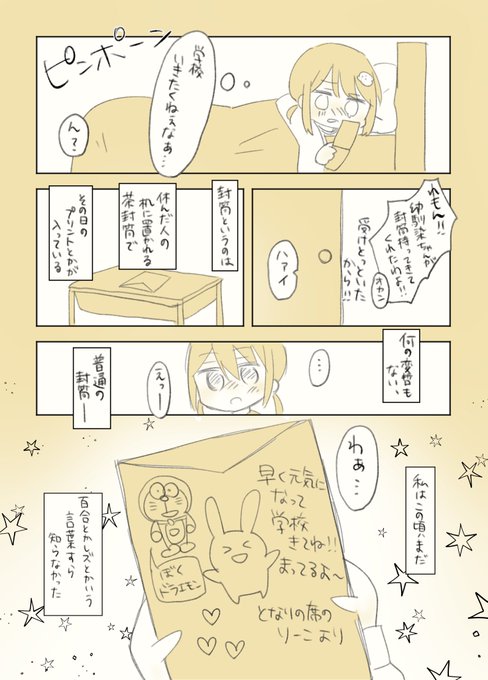 ピンポーン
学校
いきたくねぇなぁ…
ん?
れもん!!
幼馴染ちゃんが
封筒持ってきて
くれたわよ!!
オカン
受けとっといた
から!!
ハァイ
封筒というのは
休んだ人の
机に置かれる
茶封筒で
その日の
プリントとかが
入っている
何の変哲も
ない、
…
えっ—
普通の
封筒—
わぁ…
私はこの頃はまだ
早く元気に
なって
学校
きてね!!
まってるよ~
となりの席の
りーこより
ぼく
ドラエモン
百合とかレズとかいう
言葉すら
知らなかった